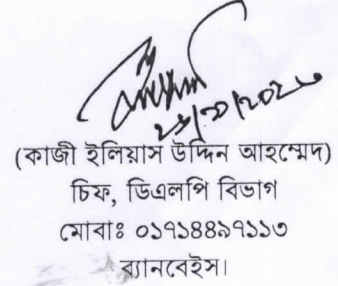 (কাজী ইলিয়াস উদ্দিন আহম্মেদ)
চিফ, ডিএলপি বিভাগ
মোবাঃ ০১৭১৪৪৯৭১১৩
ব্যানবেইস।